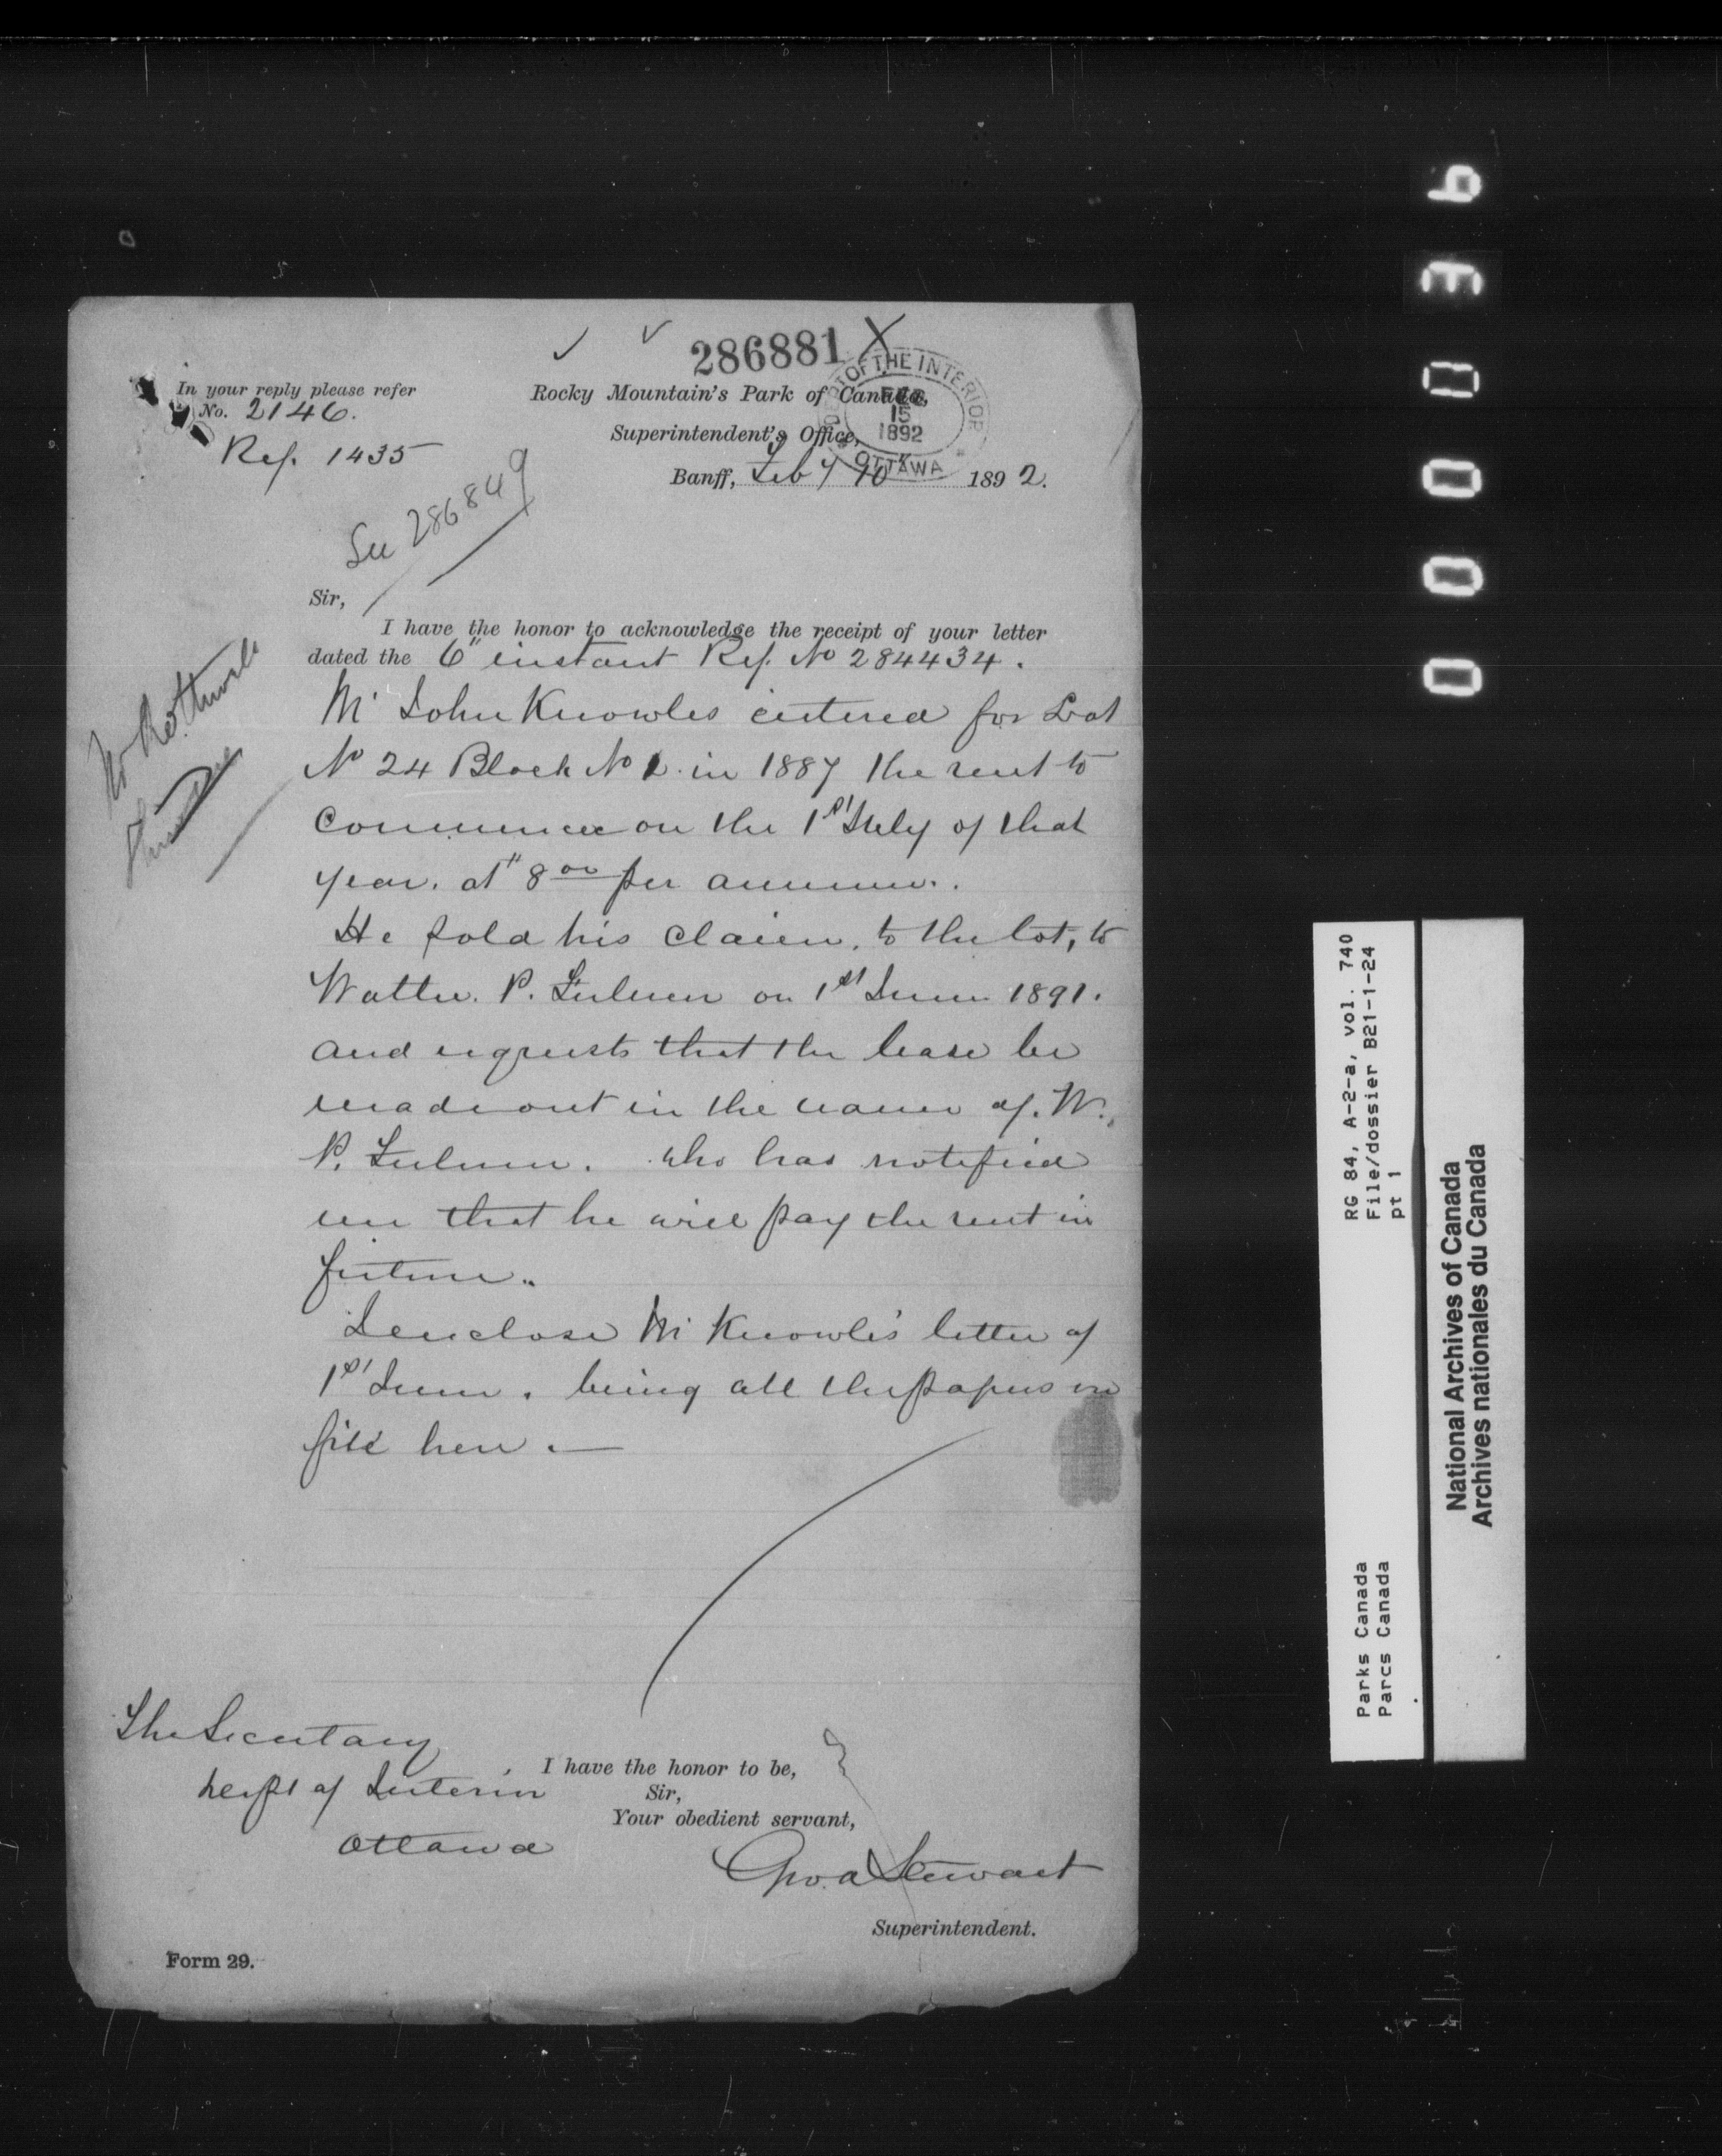 286881 X
In your reply please refer
No. 2146.
Ref. 1435
Rocky Mountain's Park of Canada,
Superintendent's Office,
Banff, Feb y 189 2.
DEPT OF THE INTERIOR
FEB
15
1892
OTTAWA
See 286849
Sir,
I have the honor to acknowledge the receipt of your letter
dated the 6" instant Ref. No 284434.
Mr John Knowles entered for Lot
No 24 Block No in 1887 the rent to
commence on the 1st July of that
year. at 8 00 per annum.
He sold his claim, to the lot, to
Walter. P. on 1st June 1891.
and requests that the lease be
made out in the name of. W.
P. who has notified
me that he will pay the rent in
future.
I enclose Mr Knowles' letter of
1st June. being all the papers on
file here.—
Mr Rothwell
The Secretary
Dept of Interior
Ottawa
I have the honor to be,
Sir,
Your obedient servant,
Geo. A Stewart
Superintendent.
Form 29.
000036
RG 84, A-2-a, vol. 740
File/dossier B21-1-24
pt 1
Parks Canada
Parcs Canada
National Archives of Canada
Archives nationales du Canada